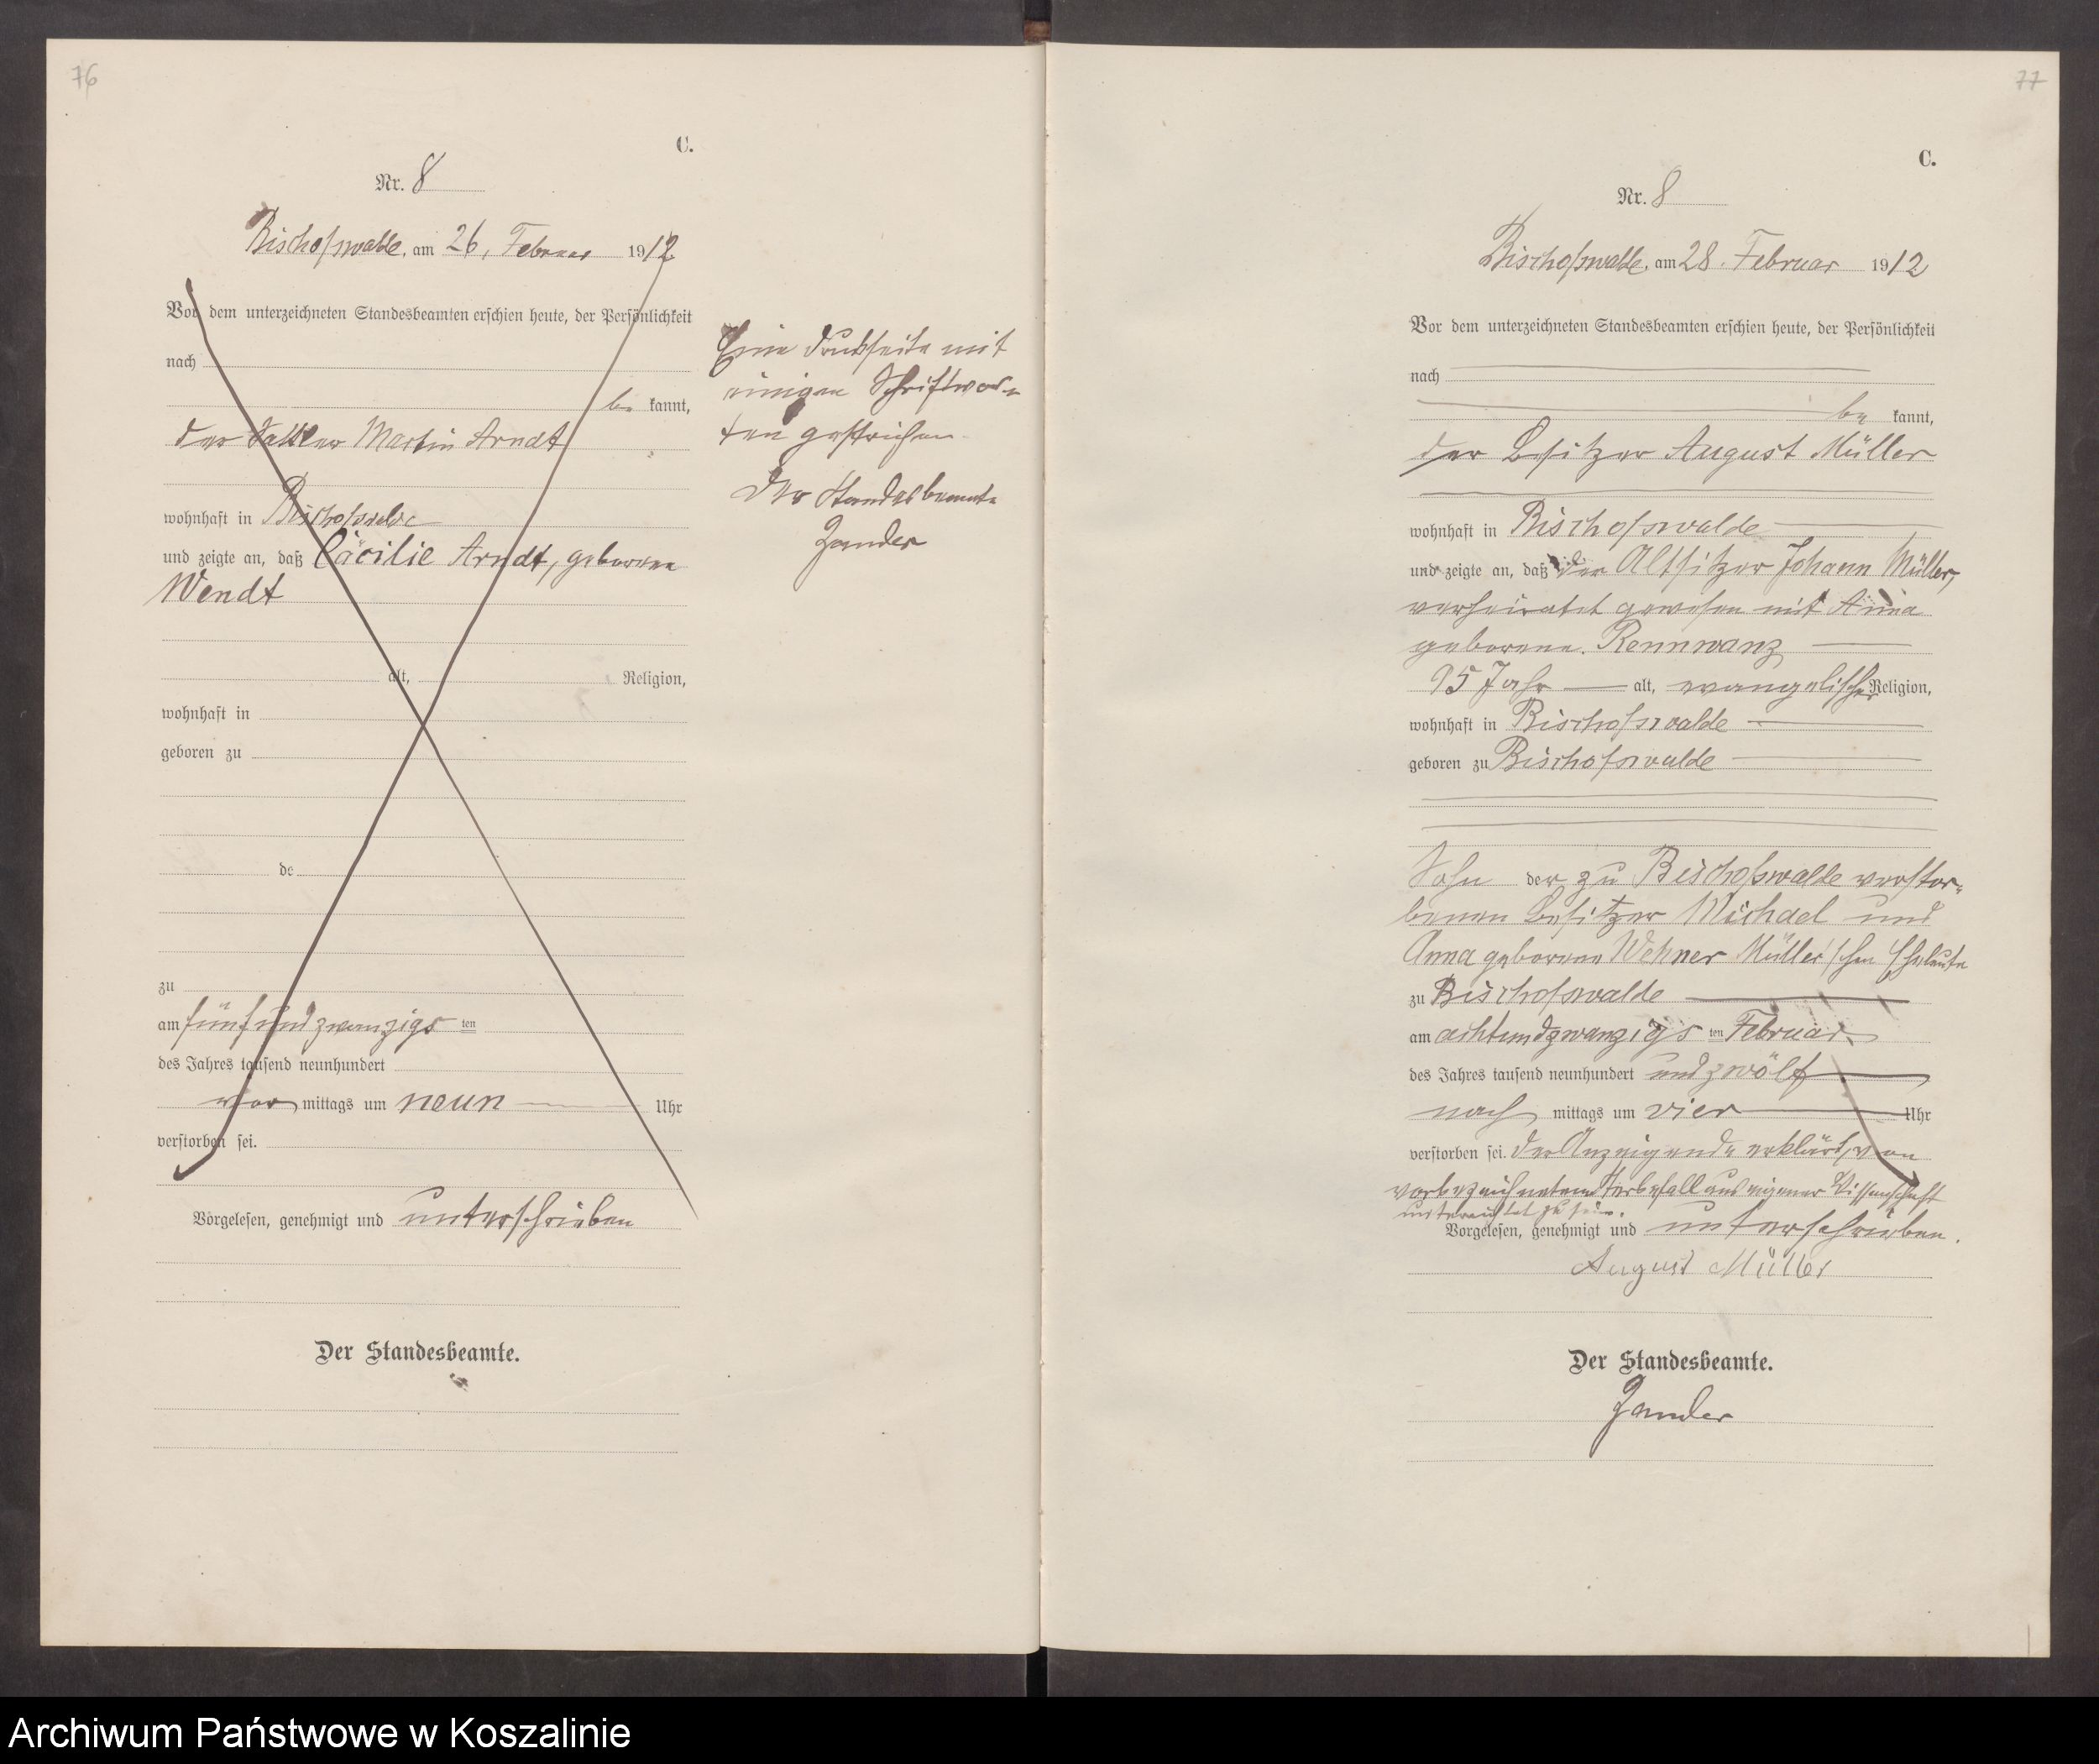 76
C.
Nr. 8
Bischofswalde, am 26. Februar 1912
Vor dem unterzeichneten Standesbeamten erschien heute, der Persönlichkeit
nach
be kannt,
der Sattler Martin Arndt
wohnhaft in Bischofswalde
und zeigte an, daß Cäcilie Arndt, geborene
Wendt
alt, Religion,
wohnhaft in
geboren zu
de
zu
am fünfundzwanzigs ten
des Jahres tausend neunhundert
vor mittags um neun Uhr
verstorben sei.
Vorgelesen, genehmigt und unterschrieben
Der Standesbeamte.
Eine Druckseite mit
einigen Schriftwor-
ten gestrichen.
Der Standesbeamte
Zander
77
C.
Nr. 8
Bischofswalde, am 28. Februar 1912
Vor dem unterzeichneten Standesbeamten erschien heute, der Persönlichkeit
nach
be kannt,
der Besitzer August Müller
wohnhaft in Bischofswalde
und zeigte an, daß der Altsitzer Johann Müller,
verheiratet gewesen mit Anna
geborene Rennwanz
95 Jahr alt, evangelischer Religion,
wohnhaft in Bischofswalde
geboren zu Bischofswalde
Sohn der zu Bischofswalde verstor-
benen Besitzer Michael und
Anna geborene Wehner Müller'schen Eheleute
zu Bischofswalde
am achtundzwanzigs ten Februar
des Jahres tausend neunhundert und zwölf
nach mittags um vier Uhr
verstorben sei. Der Anzeigende erklärt, von
vorbezeichnetem Sterbefall aus eigener Wissenschaft
unterrichtet zu sein.
Vorgelesen, genehmigt und unterschrieben.
August Müller
Der Standesbeamte.
Zander
Archiwum Państwowe w Koszalinie